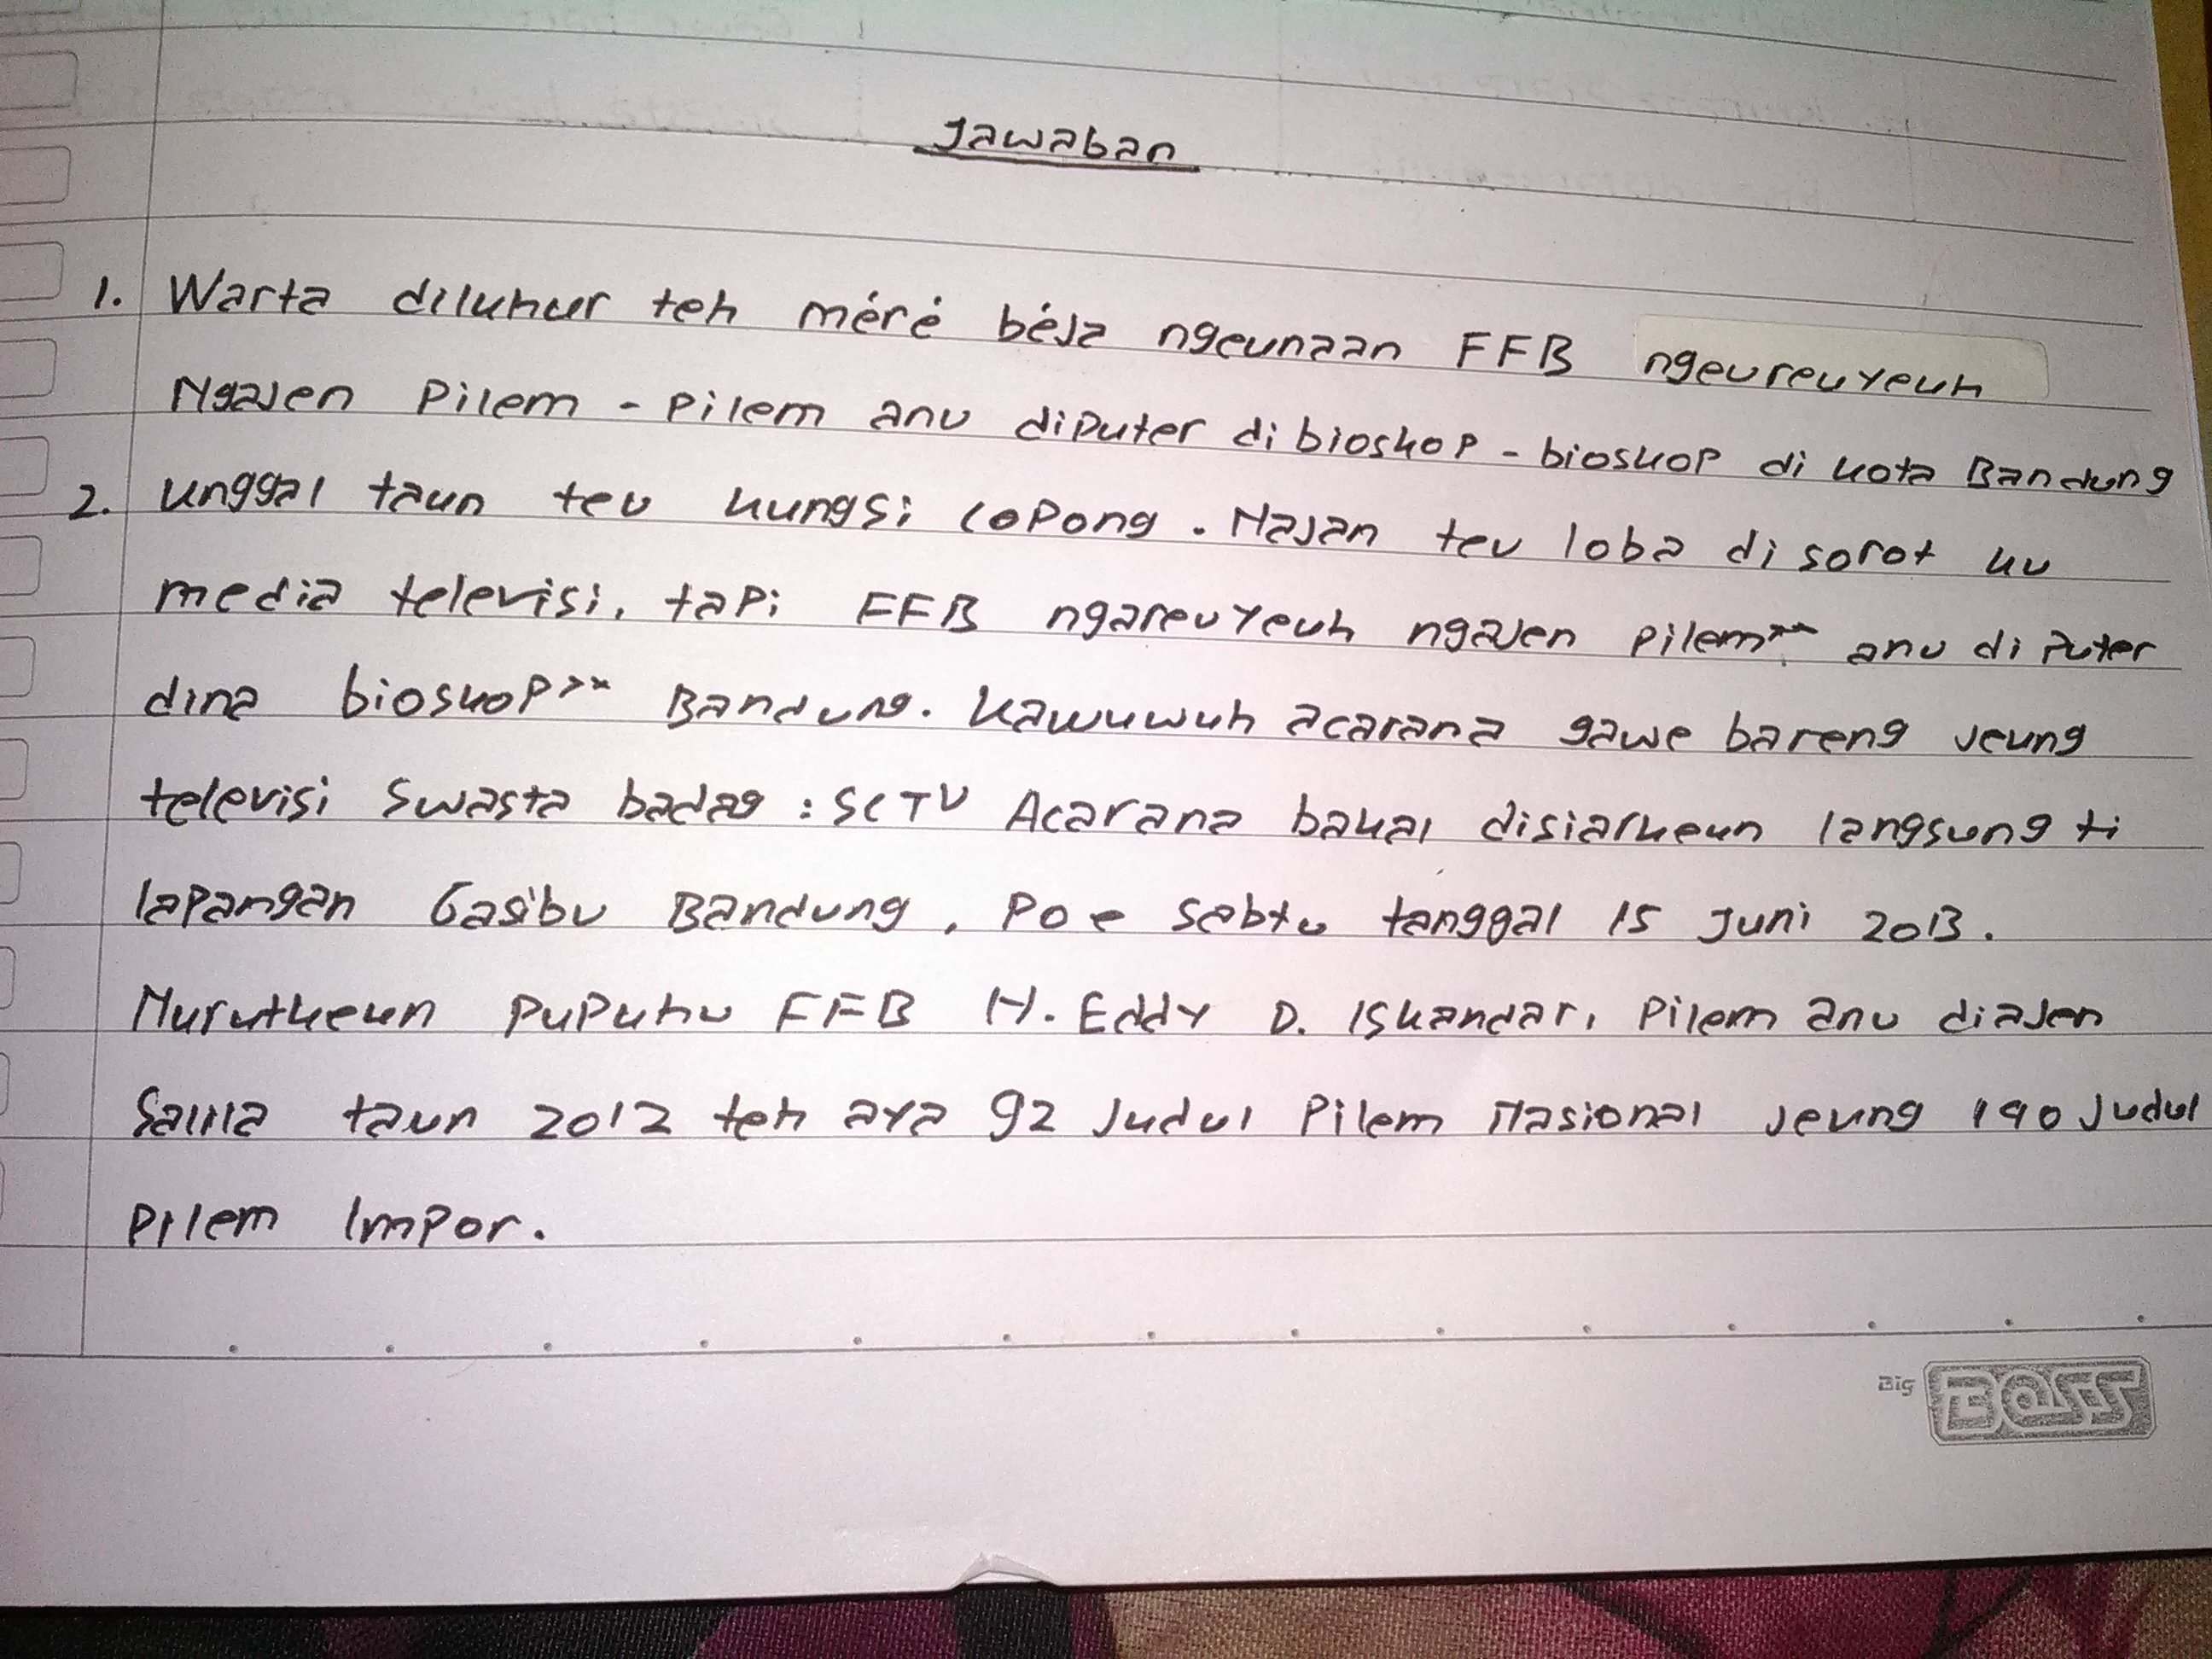 Jawaban
1. Warta diluhur teh méré béja ngeunaan FFB ngeureuyeuh
Ngajen Pilem - pilem anu diputer di bioskop - bioskop di kota Bandung
2. Unggal taun teu kungsi copong. Najan teu loba di sorot ku
media televisi, tapi FFB ngareuyeuh ngajen pilem" anu di puter
dina bioskop" Bandung. Kawuwuh acarana gawe bareng jeung
televisi swasta badag : SCTV Acarana bakal disiarkeun langsung ti
lapangan Gasibu Bandung, Poe sabtu tanggal 15 Juni 2013.
Nurutkeun pupuhu FFB H. Eddy D. Iskandar, Pilem anu diajen
Salila taun 2012 teh aya 92 Judul Pilem Nasional jeung 190 Judul
Pilem Impor.
Big BOSS